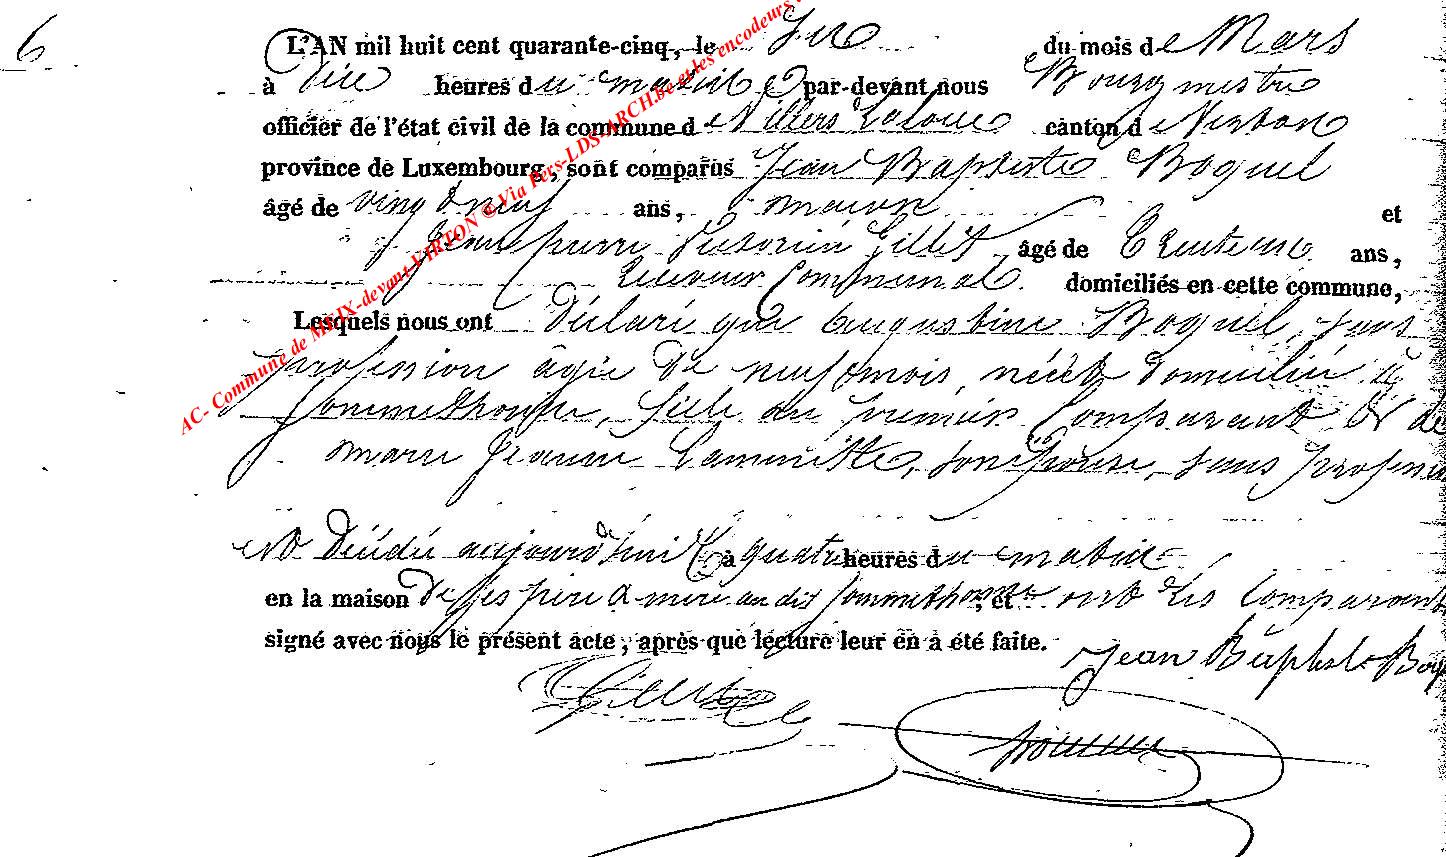 6
L'AN mil huit cent quarante-cinq, le du mois de Mars
à dix heures du matin par-devant nous Bourgmestre
officier de l'état civil de la commune de Villers Laloue canton de Virton
province de Luxembourg, sont comparus Jean Baptiste Boquel
âgé de vingt neuf ans, maçon et
Jean pierre Victorien Gillet âgé de trente un ans,
receveur Communal domiciliés en cette commune,
Lesquels nous ont Déclaré que Augustine Boquel, sans
profession âgée de neuf mois, née et domiciliée à
Sommethonne, fille du premier Comparant et de
marie Jeanne Laminette, son épouse, sans profession
est Décédée aujourd'hui à quatre heures du matin
en la maison de ses père & mère au dit Sommethonne, et ont les Comparants
signé avec nous le présent acte, après que lecture leur en à été faite.
Jean Baptiste Boq
AC- Commune de MEIX-devant-VIRTON © Via Pers-LDS-ARCH.be et les encodeurs